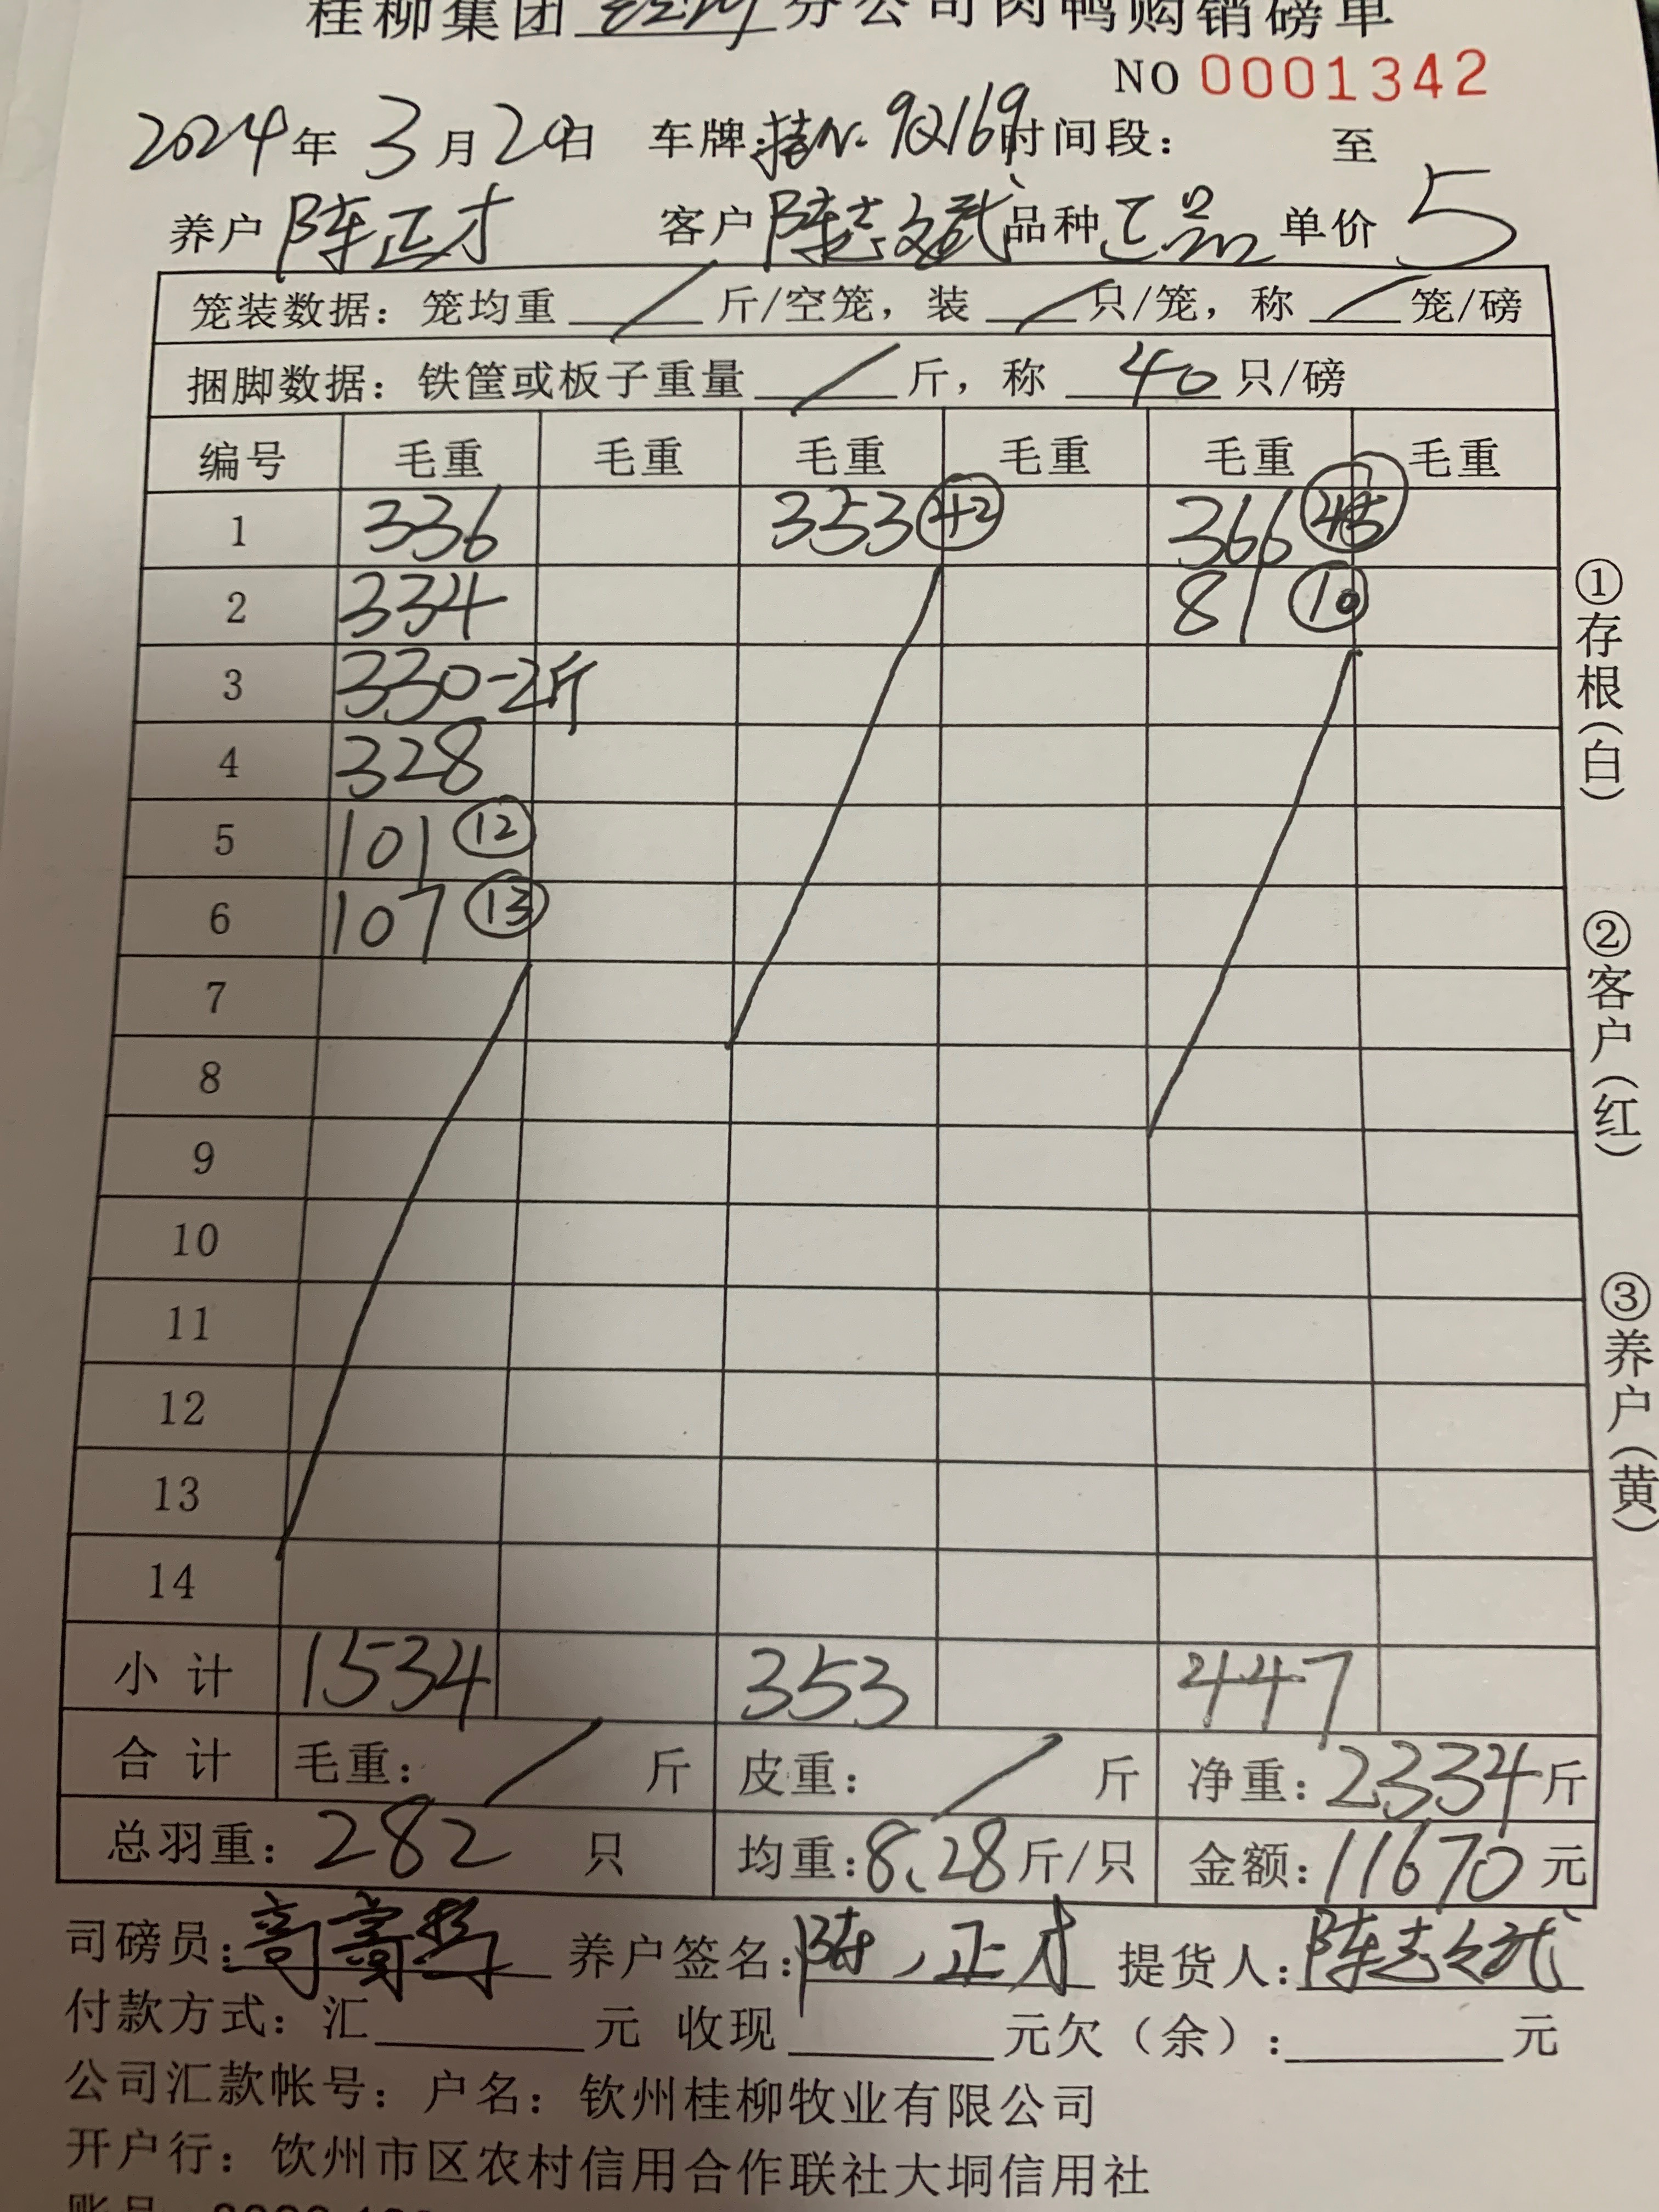 桂柳集团 分公司肉鸭购销磅单
NO 0001342
2024年 3月20日 车牌: 时间段: 至
养户 陈正才 客户 陈志斌 品种 正品 单价 5
笼装数据: 笼均重 / 斤/空笼, 装 / 只/笼, 称 / 笼/磅
捆脚数据: 铁筐或板子重量 / 斤, 称 40 只/磅
编号 毛重 毛重 毛重 毛重 毛重 毛重
1 336 353 ㊷ 366 ㊺
2 334 81 ⑩
3 330-2斤
4 328
5 101 ⑫
6 107 ⑬
7
8
9
10
11
12
13
14
小计 1534 353 447
合计 毛重: / 斤 皮重: / 斤 净重: 2334斤
总羽重: 282 只 均重: 8.28斤/只 金额: 11670元
司磅员: 养户签名: 陈正才 提货人: 陈志斌
付款方式: 汇 元 收现 元欠(余): 元
公司汇款帐号: 户名: 钦州桂柳牧业有限公司
开户行: 钦州市区农村信用合作联社大垌信用社
①存根(白)
②客户(红)
③养户(黄)